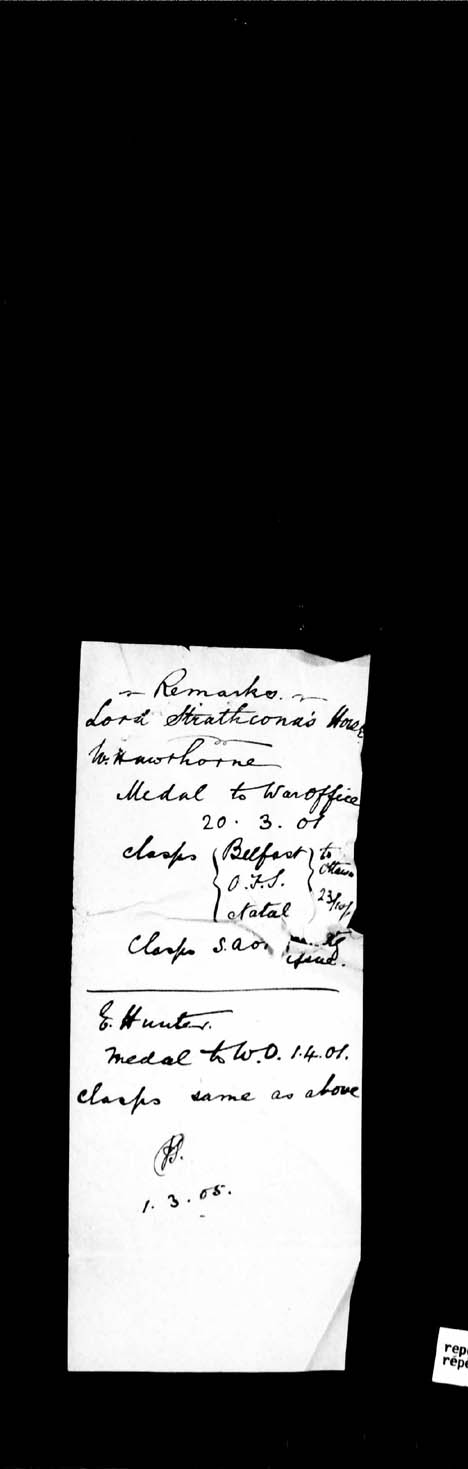 Remarks.
Lord Strathcona's Horse
W. Hawthorne
Medal to War Office
20. 3. 01
clasps { Belfast } to
O.F.S. Ottawa
Natal 23/10/
Clasps S.A. 01
issue.
E. Hunter.
Medal to W.O. 1.4.01.
clasps same as above
1. 3. 05.
repe
répé